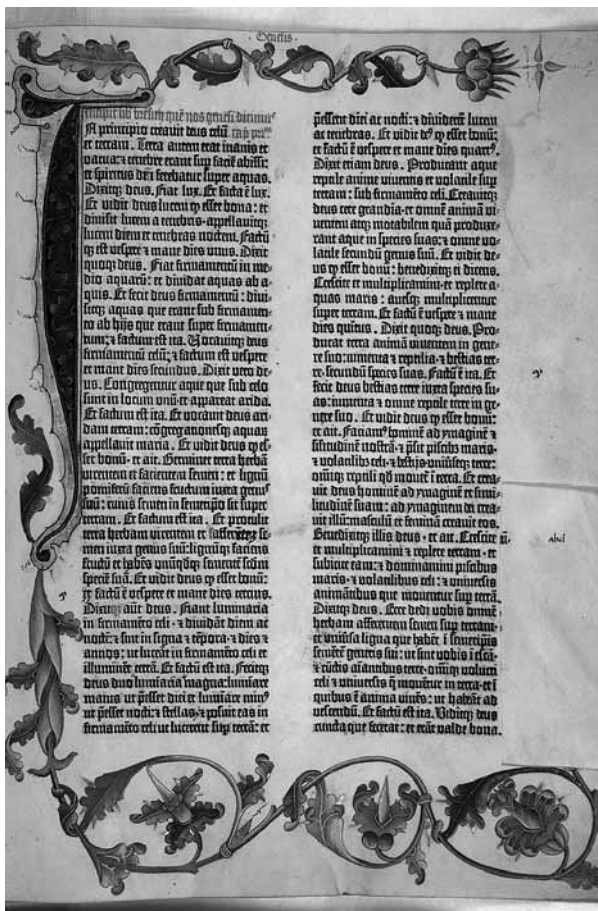 Genesis
Incipit lib̃ bresith quē nos genesi dicim⁹
In principio creauit deus celū ca̅ p̅m̅
et terram. Terra autem erat inanis et
vacua: et tenebre erant sup faciē abissi:
et spiritus dn̄i ferebatur super aquas.
Dixitqꝫ deus. Fiat lux. Et facta ē lux.
Et vidit deus lucem ꝙ esset bona: et
diuisit lucem a tenebris· appellauitqꝫ
lucem diem et tenebras noctem. Factūqꝫ
est vespere et mane dies vnus. Dixit
quoqꝫ deus. Fiat firmamentū in medio
aquarū: et diuidat aquas ab aquis.
Et fecit deus firmamentū: diuisitqꝫ
aquas que erant sub firmamento
ab hijs que erant super firmamentum:
et factum est ita. Vocauitqꝫ deus
firmamentū celū: et factum est vespere
et mane dies secundus. Dixit vero deus.
Congregentur aque que sub celo
sunt in locum vnū et appareat arida.
Et factum est ita. Et vocauit deus aridam
terram: cōgregationesqꝫ aquarū
appellauit maria. Et vidit deus ꝙ esset
bonū· et ait. Germinet terra herbā
virentem et facientem semen: et lignū
pomiferū faciens fructum iuxta gen⁹
suū: cuius semen in semetipo sit super
terram. Et factum est ita. Et protulit
terra herbam virentem et facientē semen
iuxta genus suū: lignūqꝫ faciens
fructū et habēs vnūqdqꝫ sementē scdm
speciē suā. Et vidit deus ꝙ esset bonū:
et factū ē vespere et mane dies tercius.
Dixitqꝫ aūt deus. Fiant luminaria
in firmamēto celi· et diuidāt diem ac
noctē: et sint in signa et tēpora· et dies et
annos: ut luceāt in firmamēto celi et
illuminēt terrā. Et factū est ita. Fecitqꝫ
deus duo luminaria magna: luminare
maius ut pesset diei et luminare min⁹
ut pesset nocti: et stellas· et posuit eas in
firmamēto celi ut lucerent sup terrā: et
pessent diei ac nocti: et diuiderēt lucem
ac tenebras. Et vidit de⁹ ꝙ esset bonū:
et factū ē vespere et mane dies quart⁹.
Dixit etiam deus. Producant aque
reptile anime viuentis et volatile sup
terram: sub firmamēto celi. Creauitqꝫ
deus cete grandia· et omnē animā viuentem
atqꝫ motabilem quā produxerant
aque in species suas: et omne volatile
secundū genus suū. Et vidit deus
ꝙ esset bonū: benedixitqꝫ ei dicens.
Crescite et multiplicamini· et replete aquas
maris: auesqꝫ multiplicentur
super terram. Et factū ē vespere et mane
dies quintus. Dixit quoqꝫ deus. Producat
terra animā viuentem in genere
suo: iumenta et reptilia· et bestias terre
secundū species suas. Factū ē ita. Et
fecit deus bestias terre iuxta species suas:
iumenta et omne reptile terre in genere
suo. Et vidit deus ꝙ esset bonū:
et ait. Faciam⁹ hominē ad ymaginē et
similitudinē nostrā· et psit piscibus maris·
et volatilibus celi· et bestijs vniuerseqꝫ terre:
omniqꝫ reptili qd mouet ī terra. Et creauit
deus hominē ad ymaginē et similitudinē
suam: ad ymaginem dei creauit
illū: masculū et feminā creauit eos.
Benedixitqꝫ illis deus· et ait. Crescite
et multiplicamini et replete terram· et
subicite eam: et dominamini piscibus
maris· et volatilibus celi: et vniuersis
animātibus que mouentur sup terrā.
Dixitqꝫ deus. Ecce dedi vobis omnē
herbam afferentem semen sup terram·
et vniūsa ligna que habēt ī semetipis
sementē generis sui: ut sint vobis ī escā·
et cūctis aīantibus terre· omniqꝫ volucri
celi et vniuersis q mouētur in terra· et ī
quibus ē anima viuēs: ut habeāt ad
vescendū. Et factū est ita. Viditqꝫ deus
cuncta que fecerat: et erāt valde bona.